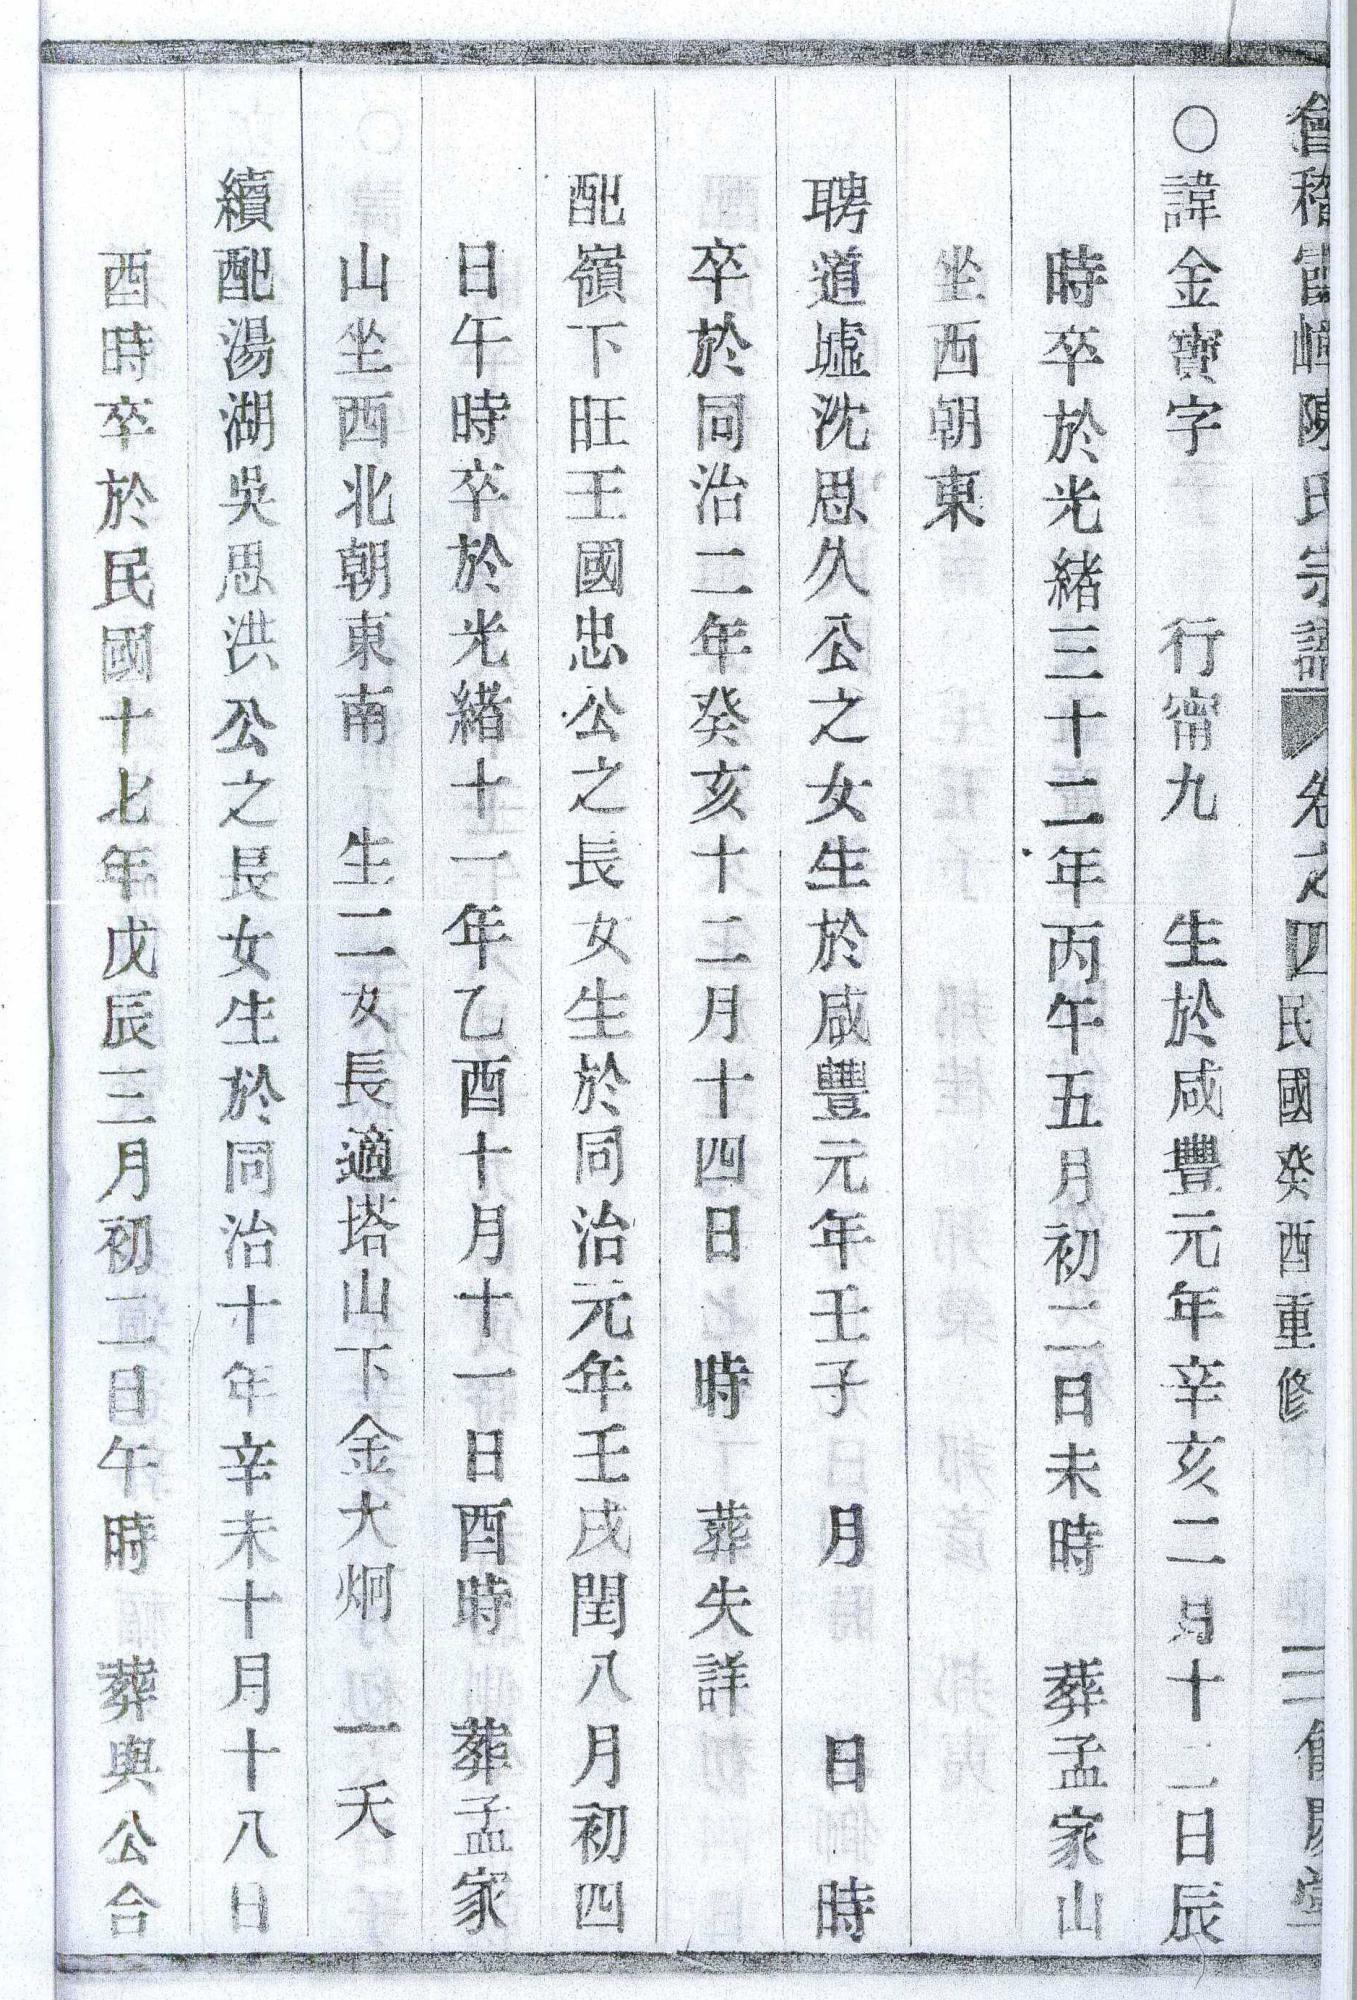 會稽富嶂陳氏宗譜 卷之四 民國癸酉重修 堂
○諱金寶字 行甯九 生於咸豐元年辛亥二月十二日辰
時卒於光緒三十二年丙午五月初二日未時 葬孟家山
坐西朝東
聘道墟沈思久公之女生於咸豐元年壬子 月 日 時
卒於同治二年癸亥十二月十四日 時 葬失詳
配嶺下旺王國忠公之長女生於同治元年壬戌閏八月初四
日午時卒於光緒十一年乙酉十月十一日酉時 葬孟家
山坐西北朝東南 生二女長適塔山下金大炯 一夭
續配湯湖吳思洪公之長女生於同治十年辛未十月十八日
酉時卒於民國十七年戊辰三月初二日午時 葬與公合